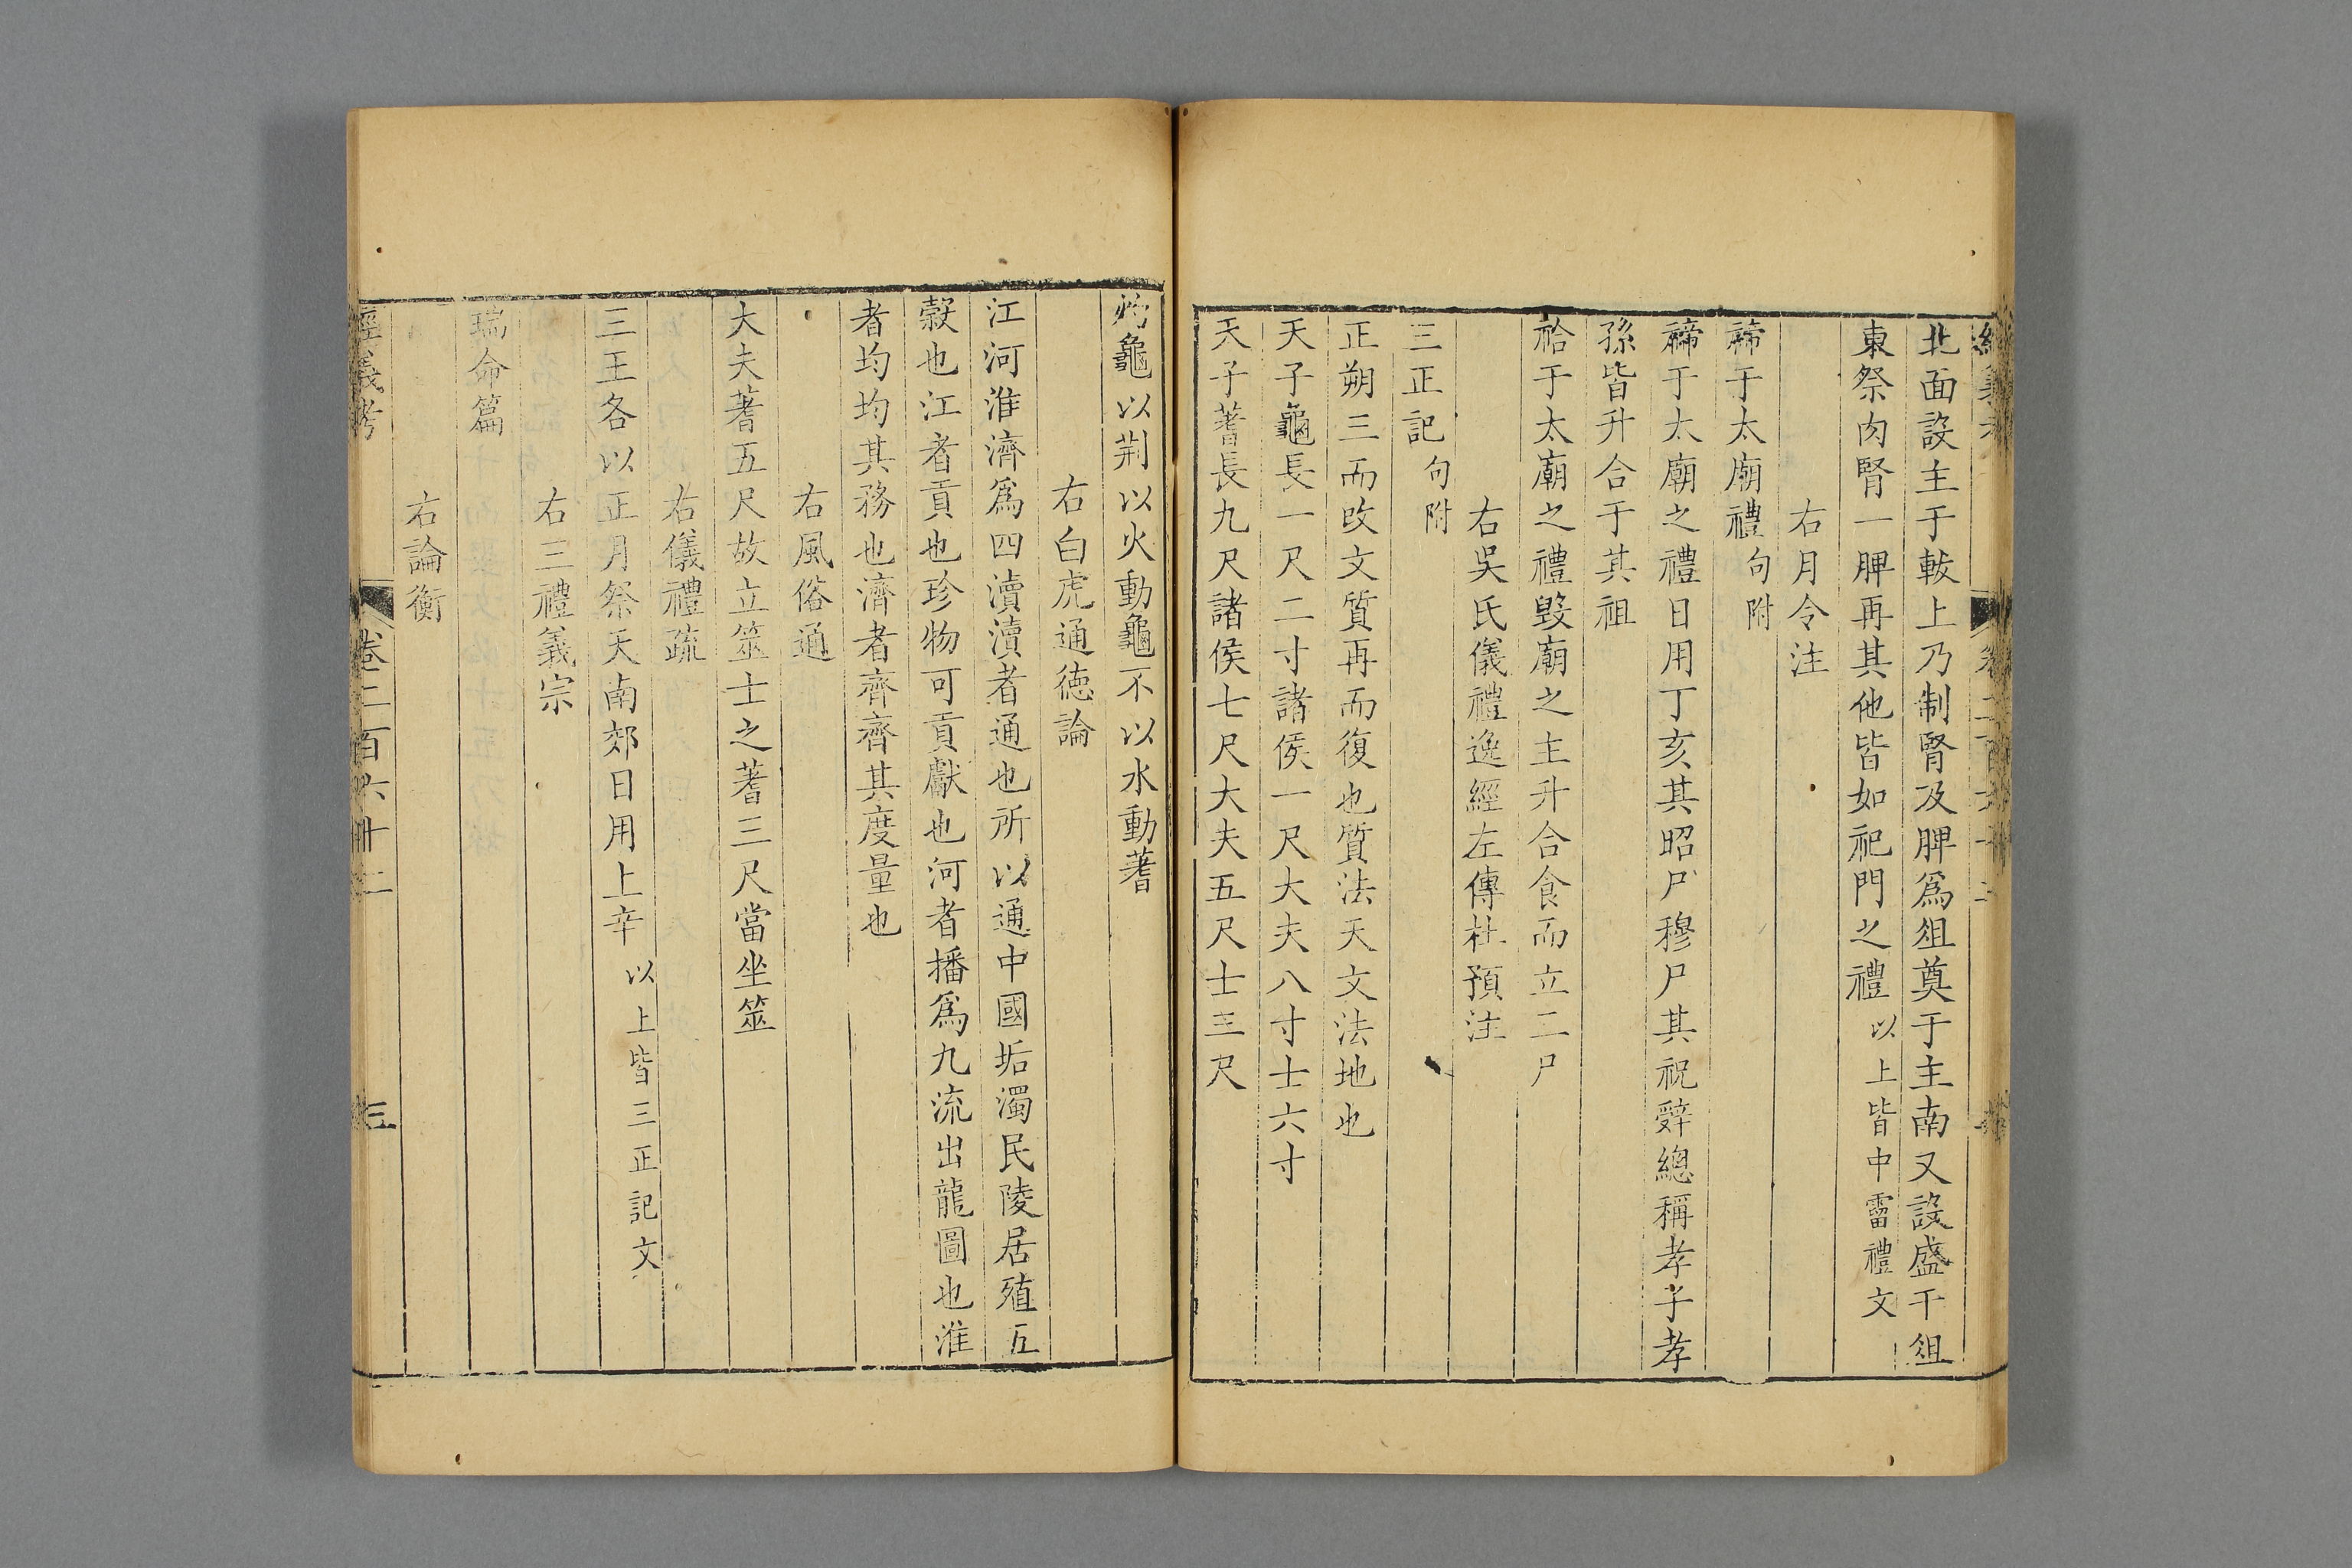 北面設主于軷上乃制腎及脾爲俎奠于主南又設盛于俎
東祭肉腎一脾再其他皆如祀門之禮以上皆中霤禮文
右月令注
禘于太廟禮句附
禘于太廟之禮日用丁亥其昭尸穆尸其祝辭總稱孝子孝
孫皆升合于其祖
祫于太廟之禮毀廟之主升合食而立二尸
右吳氏儀禮逸經左傳杜預注
三正記句附
正朔三而改文質再而復也質法天文法地也
天子龜長一尺二寸諸侯一尺大夫八寸士六寸
天子蓍長九尺諸侯七尺大夫五尺士三尺
灼龜以荆以火動龜不以水動蓍
右白虎通德論
江河淮濟爲四瀆瀆者通也所以通中國垢濁民陵居殖五
穀也江者貢也珍物可貢獻也河者播爲九流出龍圖也淮
者均均其務也濟者齊齊其度量也
右風俗通
大夫蓍五尺故立筮士之蓍三尺當坐筮
右儀禮疏
三王各以正月祭天南郊日用上辛以上皆三正記文
右三禮義宗
瑞命篇
右論衡
經義考 卷二百六十二 三